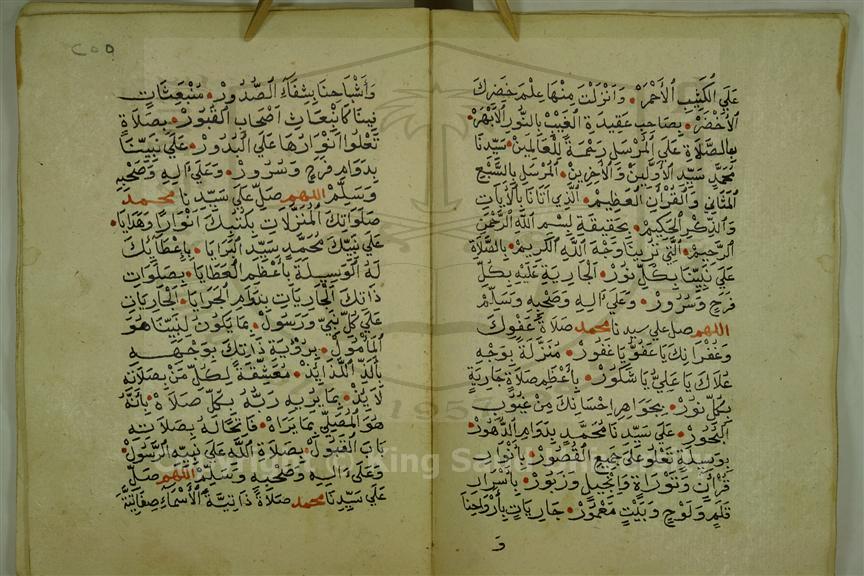 عَلَي الْكَثِيبِ الْأَحْمَرْ • وَأَنْزَلْتَ مِنْهَا عِلْمَ خَضِرِكَ
الْأَخْضَرْ • بِصَاحِبِ عَقِيدَةِ الْغَيْبِ بِالنُّورِ الْأَبْهَرْ •
بِالصَّلَاةِ عَلَي الْمُرْسَلِ رَحْمَةً لِلْعَالَمِينَ • سَيِّدِنَا
مُحَمَّدٍ سَيِّدِ الْأَوَّلِينَ وَالْأَخِرِينَ • الْمُرْسَلِ بِالسَّبْعِ
الْمَثَانِي وَالْقُرْآنِ الْعَظِيمْ • الَّذِي أَتَانَا بِالْأَيَاتِ
وَالذِّكْرِ الْحَكِيمْ • بِحَقِيقَةِ بِسْمِ اللَّهِ الرَّحْمَنِ
الرَّحِيمْ • الَّتِي تُرِينَا وَجْهَ اللَّهِ الْكَرِيمْ • بِالصَّلَاةِ
عَلَي نَبِيِّنَا بِكُلِّ نُورْ • الْجَارِيَةِ عَلَيْهِ بِكُلِّ
فَرَحٍ وَسُرُورْ • وَعَلَي آلِهِ وَصَحْبِهِ وَسَلِّمْ
اللهم صل علي سيدنا محمد صَلَاةَ عَفْوِكَ
وَغُفْرَانِكَ يَا عَفُوُّ يَا غَفُورْ • مُنَزَّلَةً بِوَجْهِ
عُلَاكَ يَا عَلِيُّ يَا شَكُورْ • بِأَعْظَمِ صَلَاةٍ جَارِيَةٍ
بِكُلِّ نُورْ • بِجَوَاهِرِ إِحْسَانِكَ مِنْ عُيُوبِ
الْبُحُورْ • عَلَي سَيِّدِنَا مُحَمَّدٍ بِدَوَامِ الدُّهُورْ •
بِوَسِيلَةٍ تَعْلُو عَلَي جَمِيعِ الْقُصُورْ • بِأَنْوَارِ
قُرْآنٍ وَتَوْرَاةٍ وَإِنْجِيلٍ وَزَبُورْ • بِأَسْرَارِ
قَلَمٍ وَلَوْحٍ وَبَيْتٍ مَعْمُورْ • جَارِيَاتٍ بِأَرْوَاحِنَا
وَ
٢٥٥
وَأَشْبَاحِنَا بِشِفَاءِ الصُّدُورْ • مُنْبَعِثَاتٍ
فِينَا كَانْبِعَاثِ أَصْحَابِ الْقُبُورْ • بِصَلَاةٍ
تَعْلُوا أَنْوَارُهَا عَلَي الْبُدُورْ • عَلَي نَبِيِّنَا
بِدَوَامِ فَرَحٍ وَسُرُورْ • وَعَلَي آلِهِ وَصَحْبِهِ
وَسَلِّمْ اللهم صَلِّ عَلَي سَيِّدِنَا محمد
صَلَوَاتِكَ الْمُنَزَّلَاتِ بِكُتُبِكَ أَنْوَارًا وَهَدَايَا •
عَلَي نَبِيِّكَ مُحَمَّدٍ سَيِّدِ الْبَرَايَا • بِإِعْطَائِكَ
لَهُ الْوَسِيلَةَ بِأَعْظَمِ الْعَطَايَا • بِصَلَوَاتِ
ذَاتِكَ الْجَارِيَاتِ الْجَارِيَاتِ
عَلَي كُلِّ نَبِيٍّ وَرَسُولْ • بِمَا يَكُونُ لِنَبِيِّنَا هُوَ
الْمَأْمُولْ • بِرُؤْيَةِ ذَاتِكَ بِوَجْهِهِ
بِأَلَذِّ اللَّذَائِذْ • لِكُلِّ مَنْ بِصَلَاتِهِ
لَائِذْ • بِمَا يُرِيهِ رَبُّهُ بِكُلِّ صَلَاةٍ • بِأَنَّهُ
هُوَ الْمُصَلِّي بِمَا يَرَاهْ • فَاتِحًا لَهُ بِصَلَاتِهِ
بَابَ الْقَبُولْ • بِصَلَاةِ اللَّهِ عَلَي نَبِيِّهِ الرَّسُولْ •
وَعَلَي آلِهِ وَصَحْبِهِ وَسَلِّمْ اللهم صَلِّ
عَلَي سَيِّدِنَا محمد صَلَاةً ذَاتِيَّةَ الْأَسْمَاءِ صِفَاتِيَّةَ
1957
Copyright © King Saud University